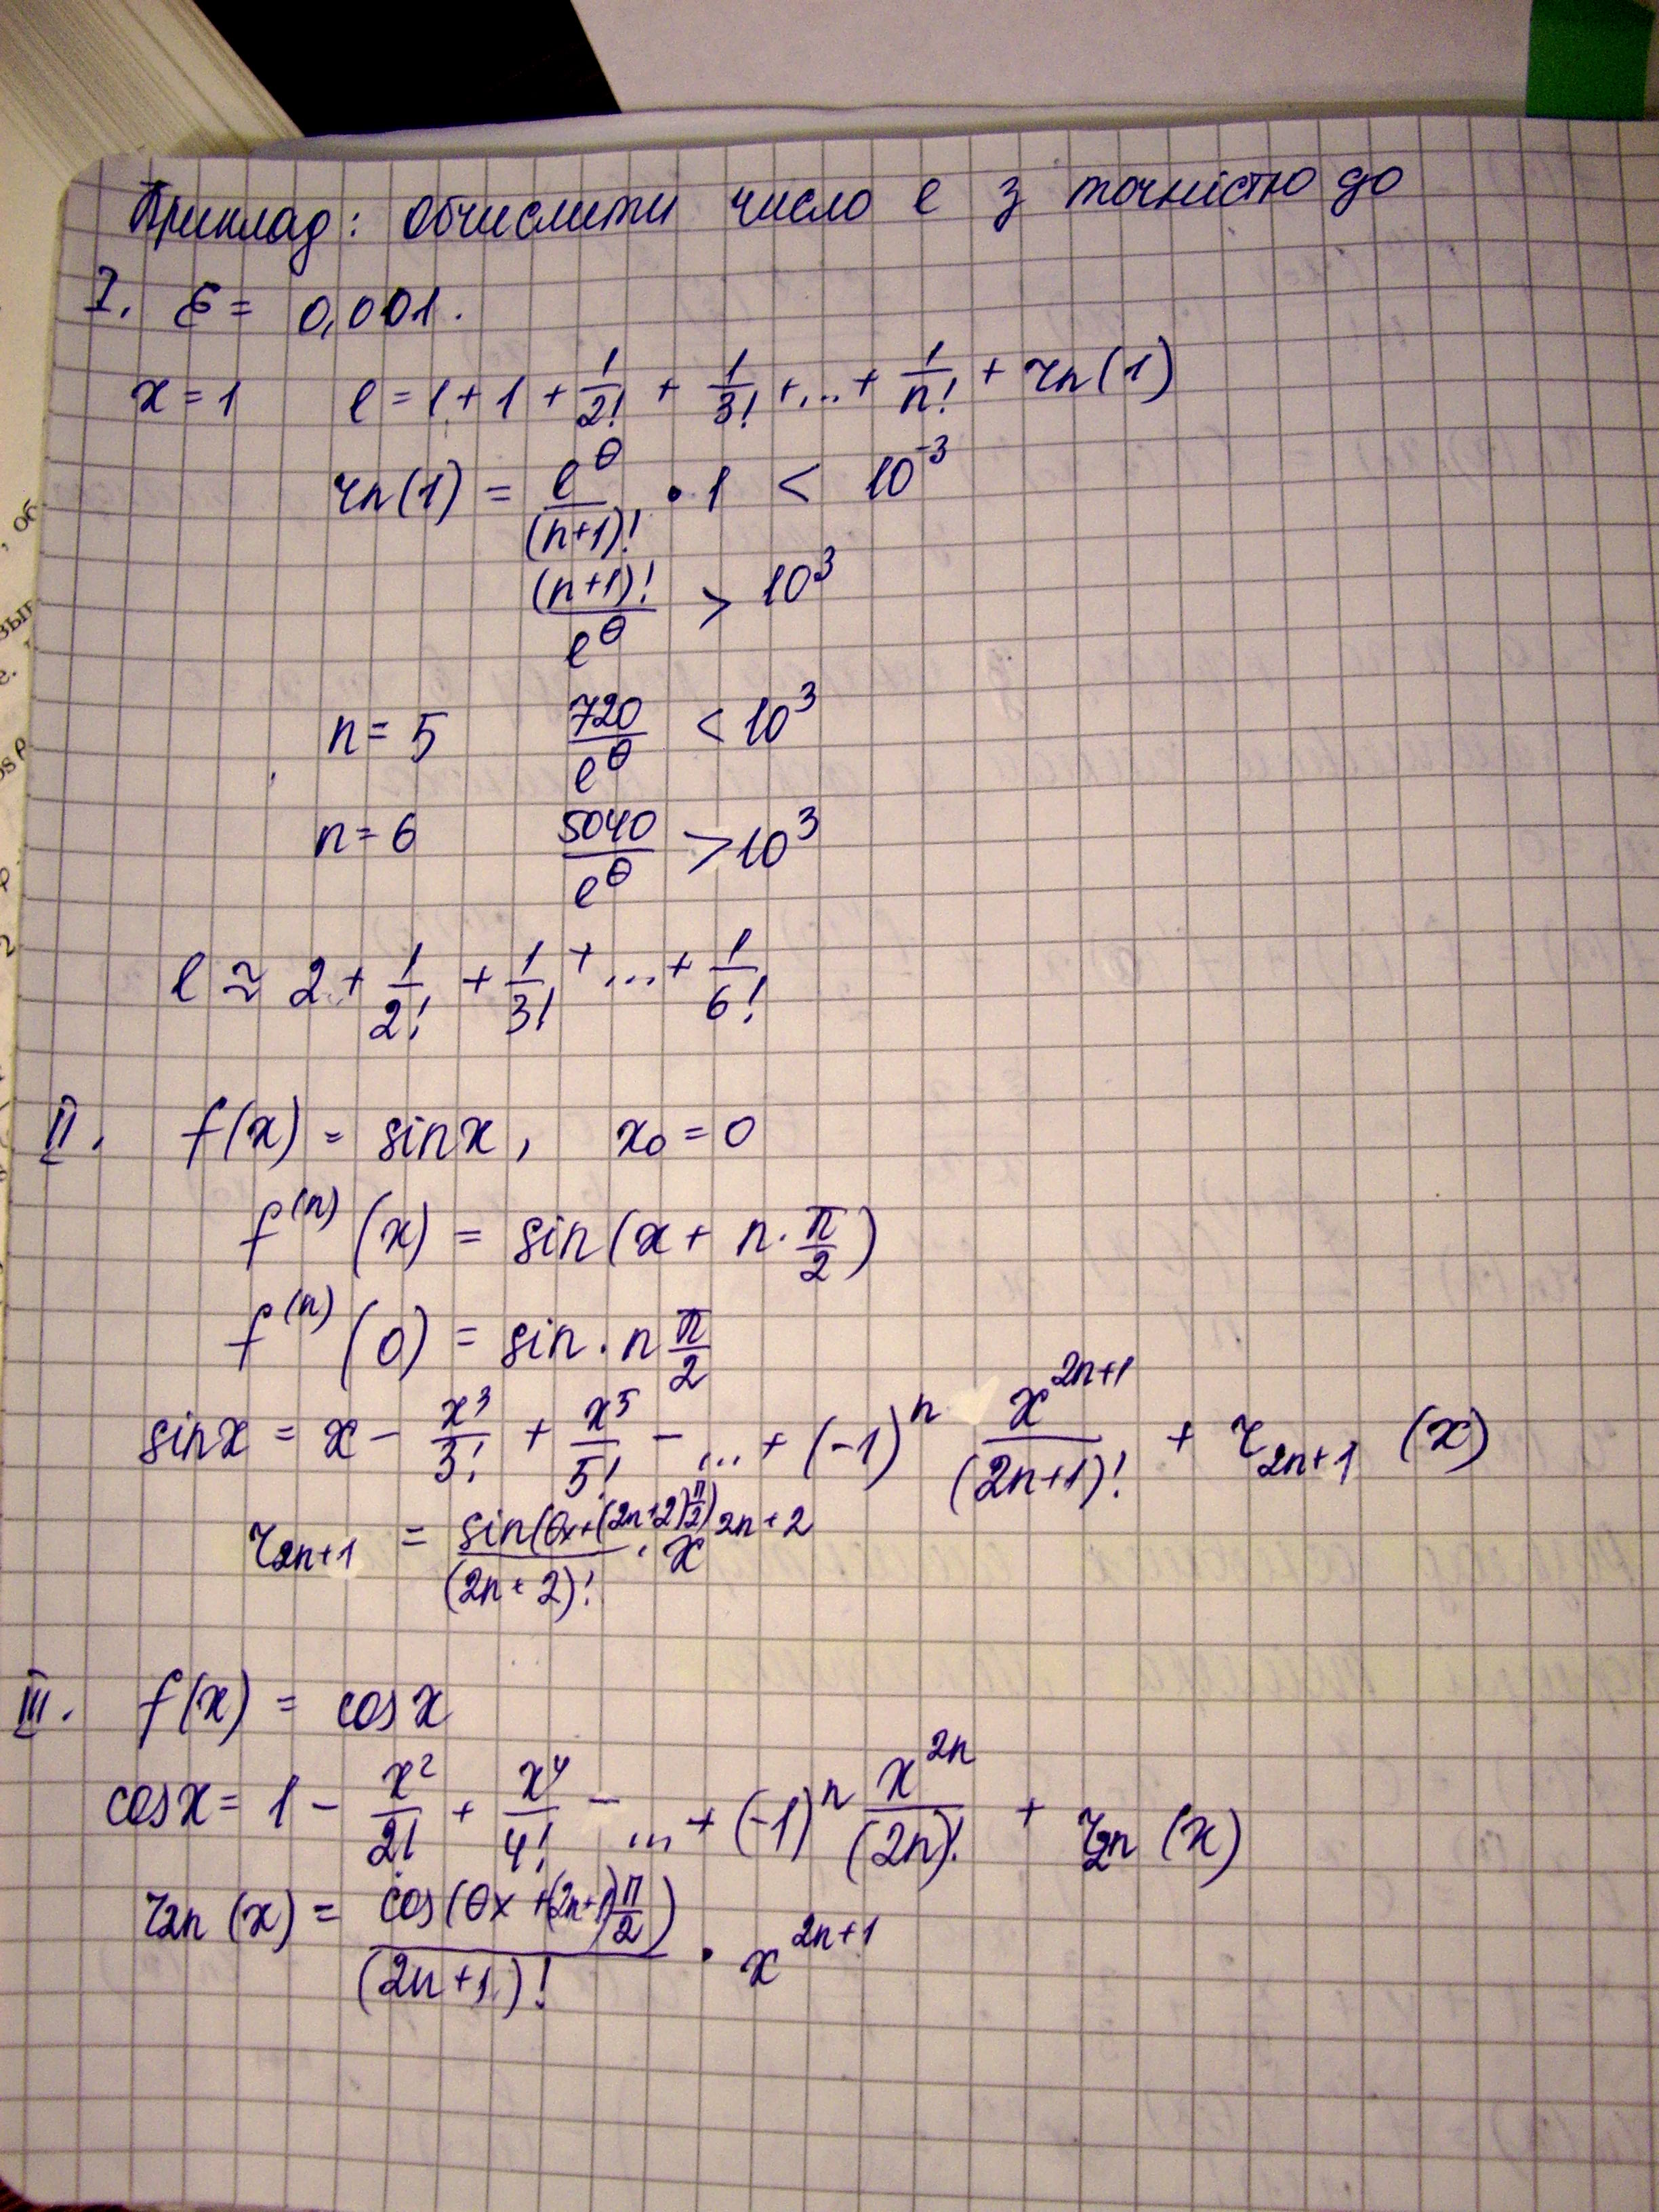 Приклад: обчислити число e з точністю до
I. ε = 0,001.
x = 1 e = 1 + 1 + 1/2! + 1/3! + ... + 1/n! + rn(1)
rn(1) = e^θ/(n+1)! · 1 < 10^-3
(n+1)!/e^θ > 10^3
n = 5 720/e^θ < 10^3
n = 6 5040/e^θ > 10^3
e ≈ 2 + 1/2! + 1/3! + ... + 1/6!
II. f(x) = sinx, x0 = 0
f^(n) (x) = sin(x + n · π/2)
f^(n) (0) = sin · n π/2
sinx = x - x^3/3! + x^5/5! - ... + (-1)^n x^(2n+1)/(2n+1)! + r2n+1 (x)
r2n+1 = sin(θx+(2n+2)π/2)/(2n+2)! · x^(2n+2)
III. f(x) = cosx
cosx = 1 - x^2/2! + x^4/4! - ... + (-1)^n x^(2n)/(2n)! + r2n (x)
r2n (x) = cos(θx+(2n+1)π/2)/(2n+1)! · x^(2n+1)